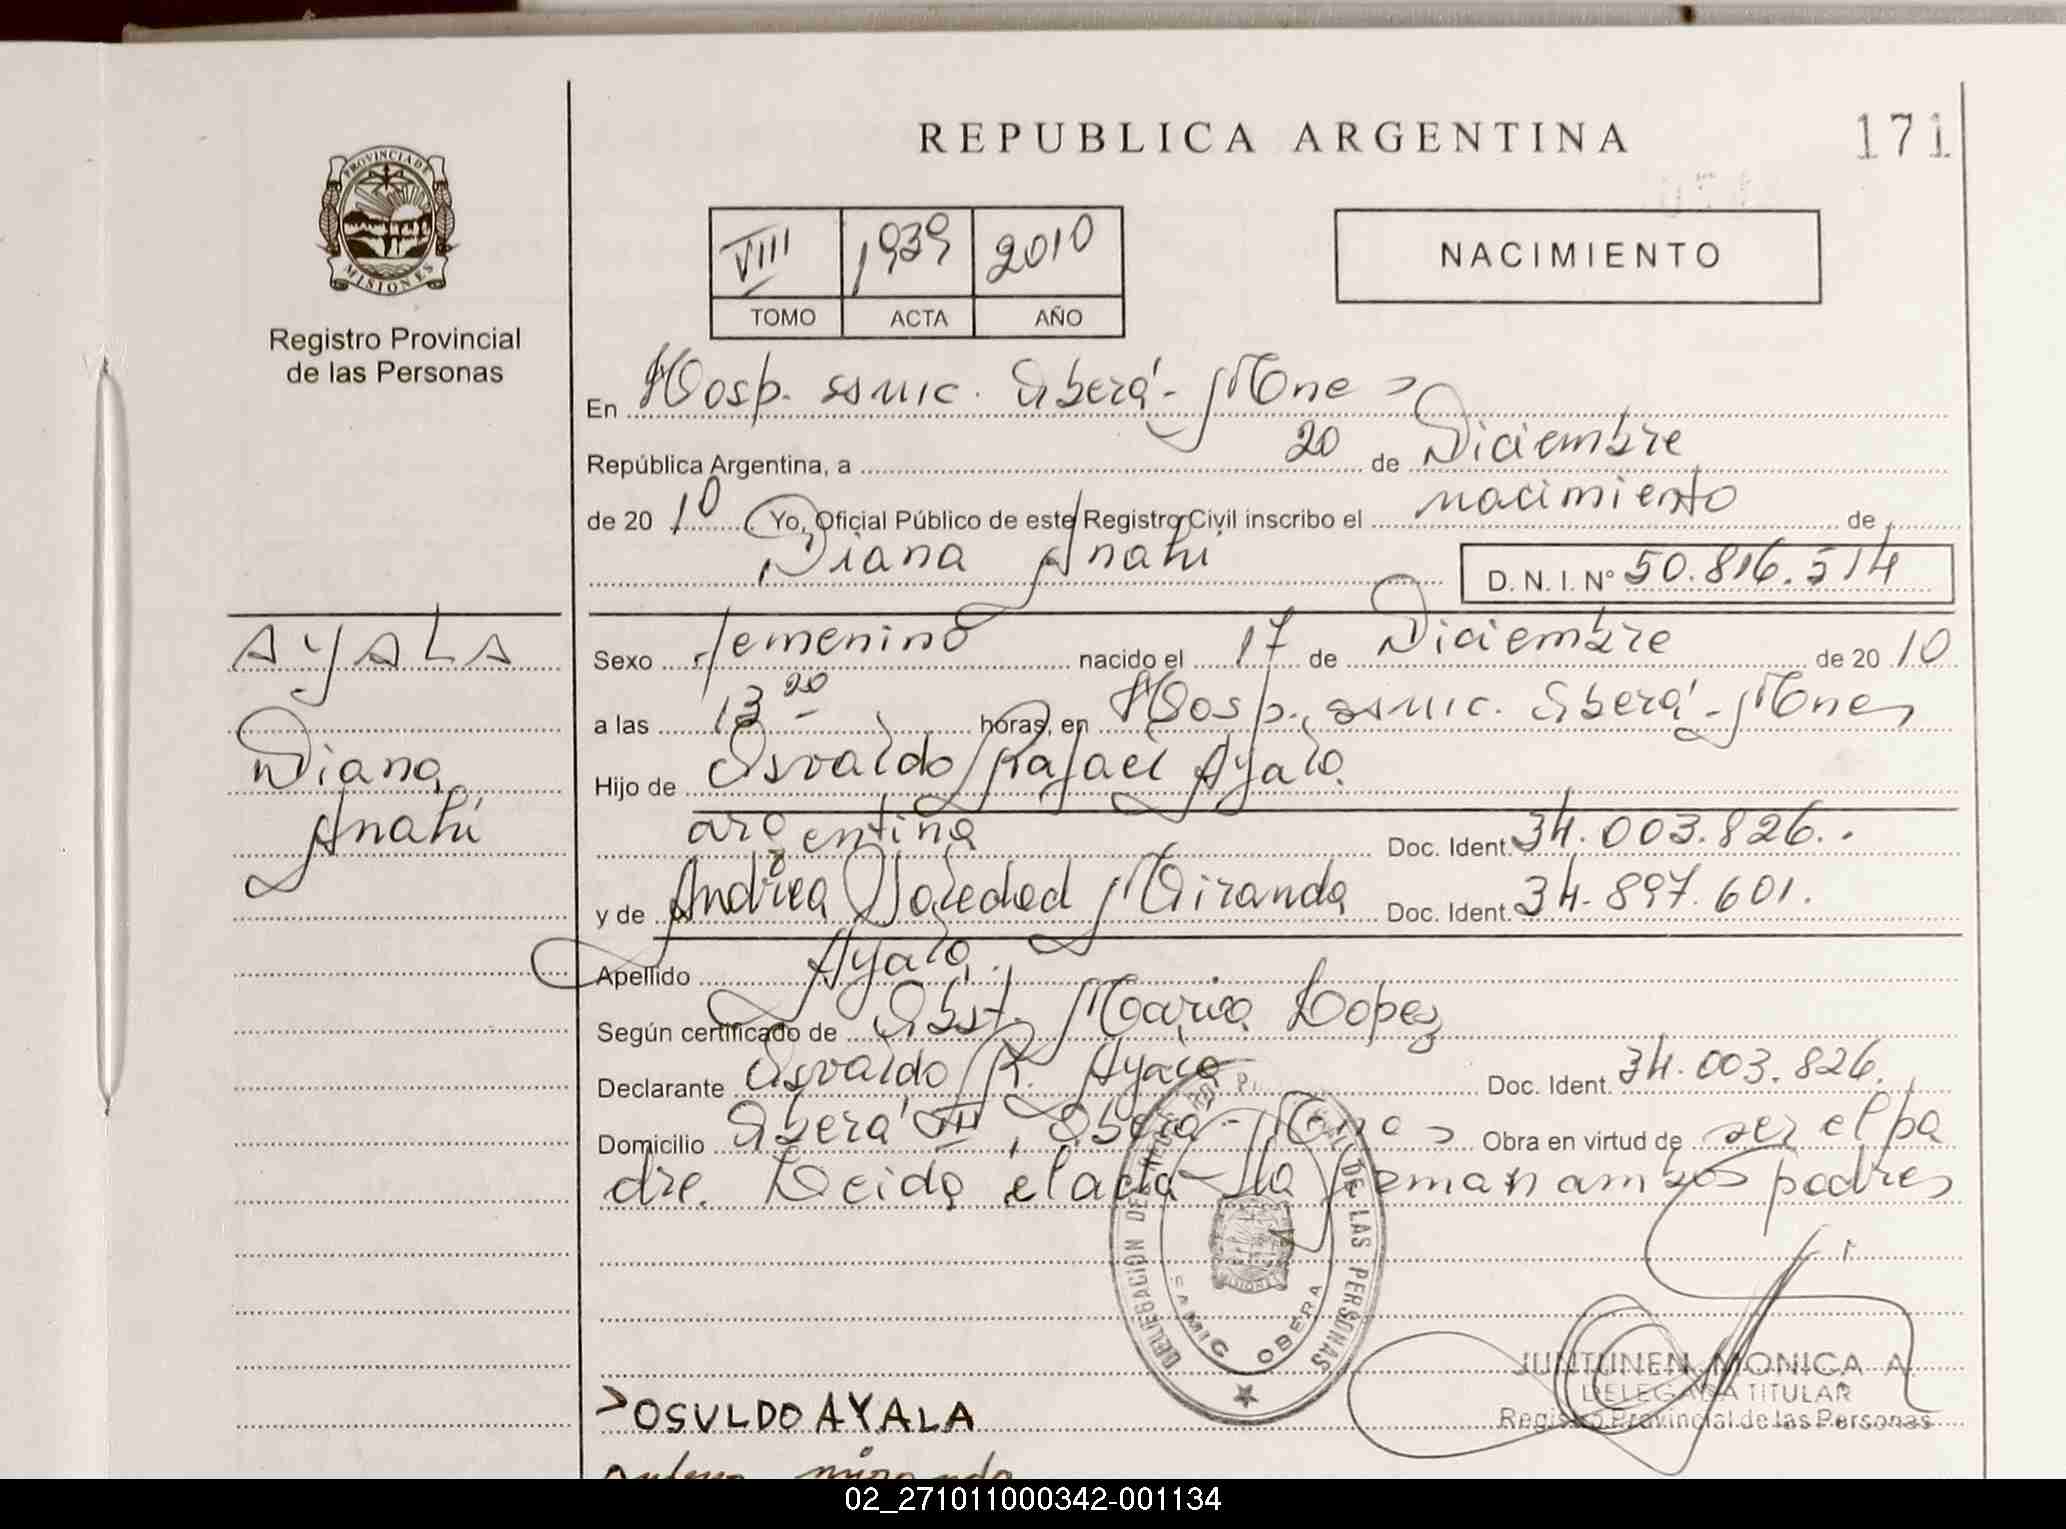 REPUBLICA ARGENTINA
171
PROVINCIA DE MISIONES
Registro Provincial
de las Personas
VIII 1939 2010
TOMO ACTA AÑO
NACIMIENTO
En Hosp. ssmic. Oberá - Mnes
República Argentina, a 20 de Diciembre
de 20 10 Yo, Oficial Público de este Registro Civil inscribo el nacimiento de
Diana Anahi D. N. I. Nº 50.816.514
AYALA
Diana
Anahí
Sexo femenino nacido el 17 de Diciembre de 20 10
a las 13 20 horas, en Hosp. ssmic. Oberá - Mnes
Hijo de Osvaldo Rafael Ayala
argentina Doc. Ident. 34.003.826.
y de Andrea Soledad Miranda Doc. Ident. 34.897.601.
Apellido Ayala
Según certificado de Obst. Maria Lopez
Declarante Osvaldo R. Ayala Doc. Ident. 34.003.826.
Domicilio Oberá III, Oberá - Mnes Obra en virtud de ser el pa
dre. Leida el acta la firman ambos padres
DELEGACION DEL REGISTRO PROVINCIAL DE LAS PERSONAS
SAMIC OBERA
JUNTUNEN MONICA A.
DELEGADA TITULAR
Registro Provincial de las Personas
OSVLDO AYALA
miranda
02_271011000342-001134